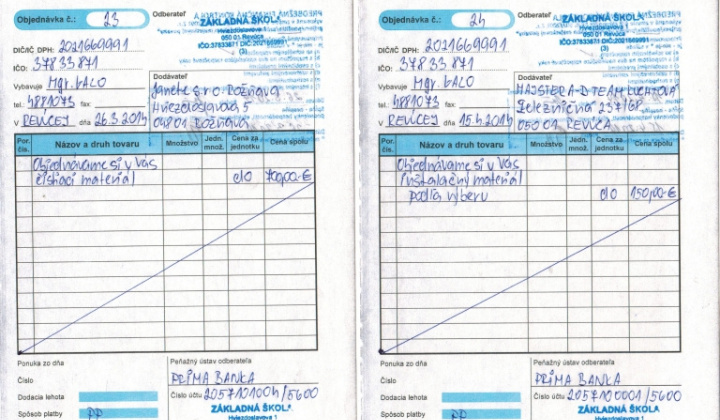 Objednávka č.: 23
Odberateľ
ZÁKLADNÁ ŠKOLA
Hviezdoslavova 1
050 01 Revúca
IČO:37833871 DIČ:2021669991
(3)
DIČ/IČ DPH: 2021669991
IČO: 37833871
Vybavuje Mgr. LALO
tel.: 4881073 fax:
v REVÚCEJ dňa 26.3.2014
Dodávateľ
Janette s r.o. Rožňava
Hviezdoslavova 5
04801 Rožňava
Por. čís.
Názov a druh tovaru
Množstvo
Jedn. množ.
Cena za jednotku
Cena spolu
Objednávame si u Vás
čistiaci materiál do 700,00 €
Ponuka zo dňa
Číslo
Dodacia lehota
Spôsob platby PP
Peňažný ústav odberateľa
PRIMA BANKA
Číslo účtu 2057101004/5600
ZÁKLADNÁ ŠKOLA
Hviezdoslavova 1
Objednávka č.: 24
Odberateľ
ZÁKLADNÁ ŠKOLA
Hviezdoslavova 1
050 01 Revúca
IČO:37833871 DIČ:2021669991
(3)
DIČ/IČ DPH: 2021669991
IČO: 37833871
Vybavuje Mgr. LALO
tel.: 4881073 fax:
v REVÚCEJ dňa 15.4.2014
Dodávateľ
MAJSTER A-D TEAM
Železničná
05001 REVÚCA
Por. čís.
Názov a druh tovaru
Množstvo
Jedn. množ.
Cena za jednotku
Cena spolu
Objednávame si u Vás
inštalačný materiál
podľa výberu do 150,00 €
Ponuka zo dňa
Číslo
Dodacia lehota
Spôsob platby PP
Peňažný ústav odberateľa
PRIMA BANKA
Číslo účtu 2057101001/5600
ZÁKLADNÁ ŠKOLA
Hviezdoslavova 1